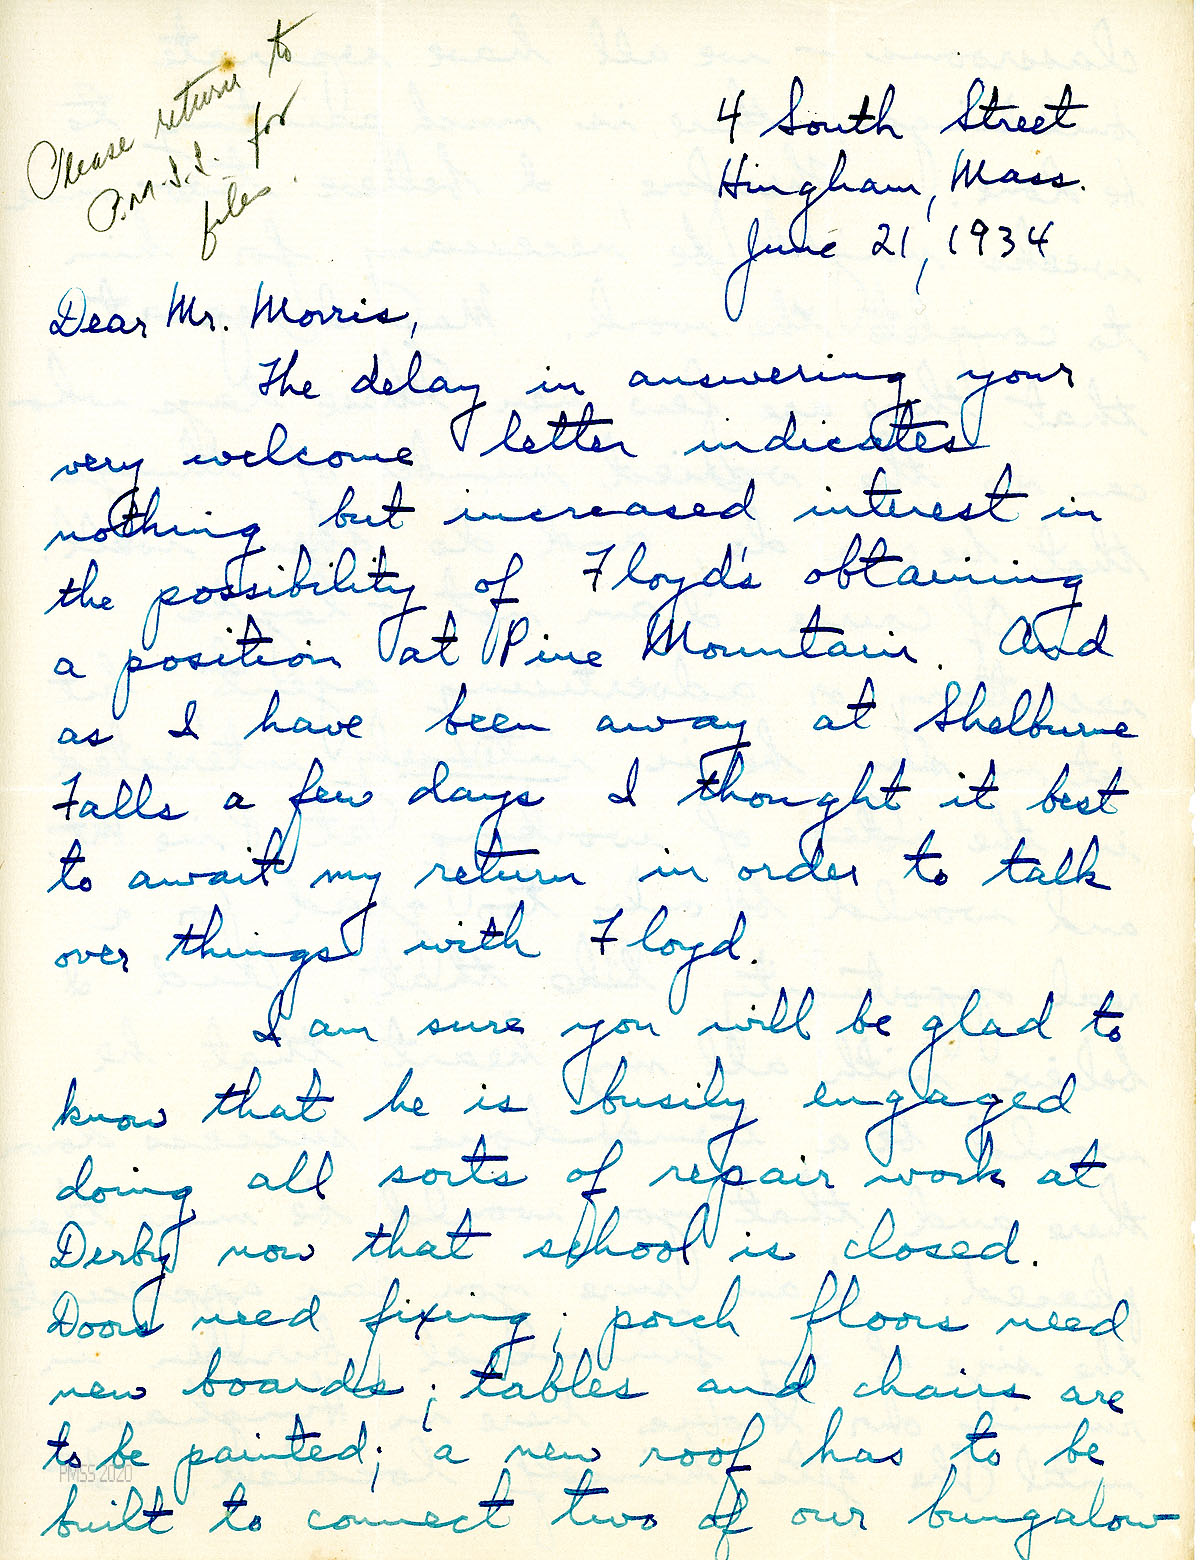 Please return to
P.M.S.S. for
files.
4 South Street
Hingham, Mass.
June 21, 1934
Dear Mr. Morris,
The delay in answering your
very welcome letter indicates
nothing but increased interest in
the possibility of Floyd's obtaining
a position at Pine Mountain. And
as I have been away at Shelburne
Falls a few days I thought it best
to await my return in order to talk
over things with Floyd.
I am sure you will be glad to
know that he is busily engaged
doing all sorts of repair work at
Derby now that school is closed.
Doors need fixing; porch floors need
new boards; tables and chairs are
to be painted; a new roof has to be
PMSS 2020
built to connect two of our bungalow